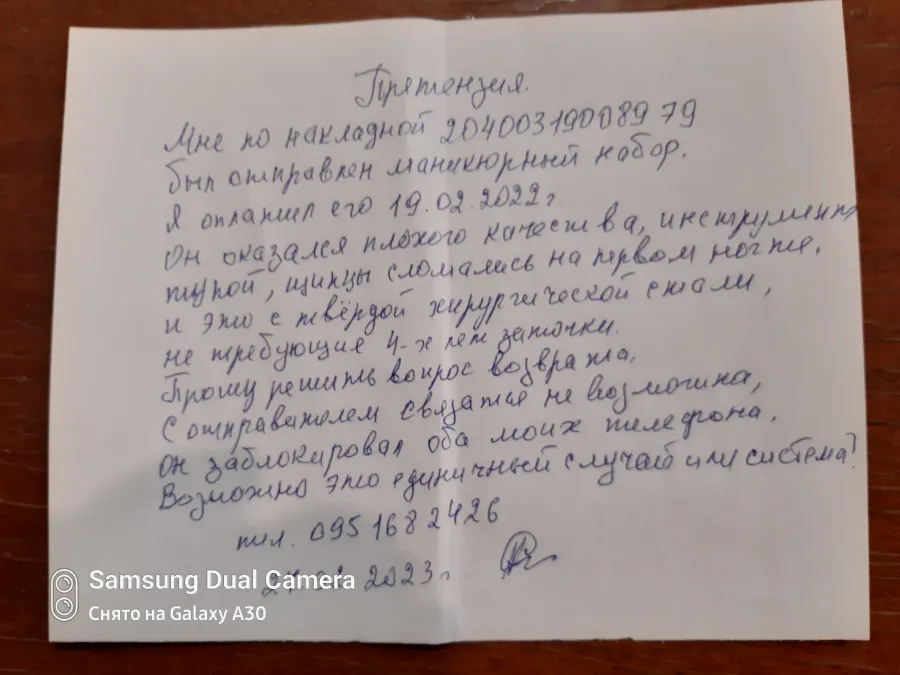 Претензия.
Мне по накладной 20400319008979
был отправлен маникюрный набор.
Я оплатил его 19.02.2022г.
Он оказался плохого качества, инструмент
тупой, щипцы сломались на первом ногте,
и это с твёрдой хирургической стали,
не требующие 4-х лет заточки.
Прошу решить вопрос возврата.
С отправителем связатся не возможина,
он заблокировал оба моих телефона.
Возможно это единичный случай или система?
тел. 0951682426
2023г
Samsung Dual Camera
Снято на Galaxy A30